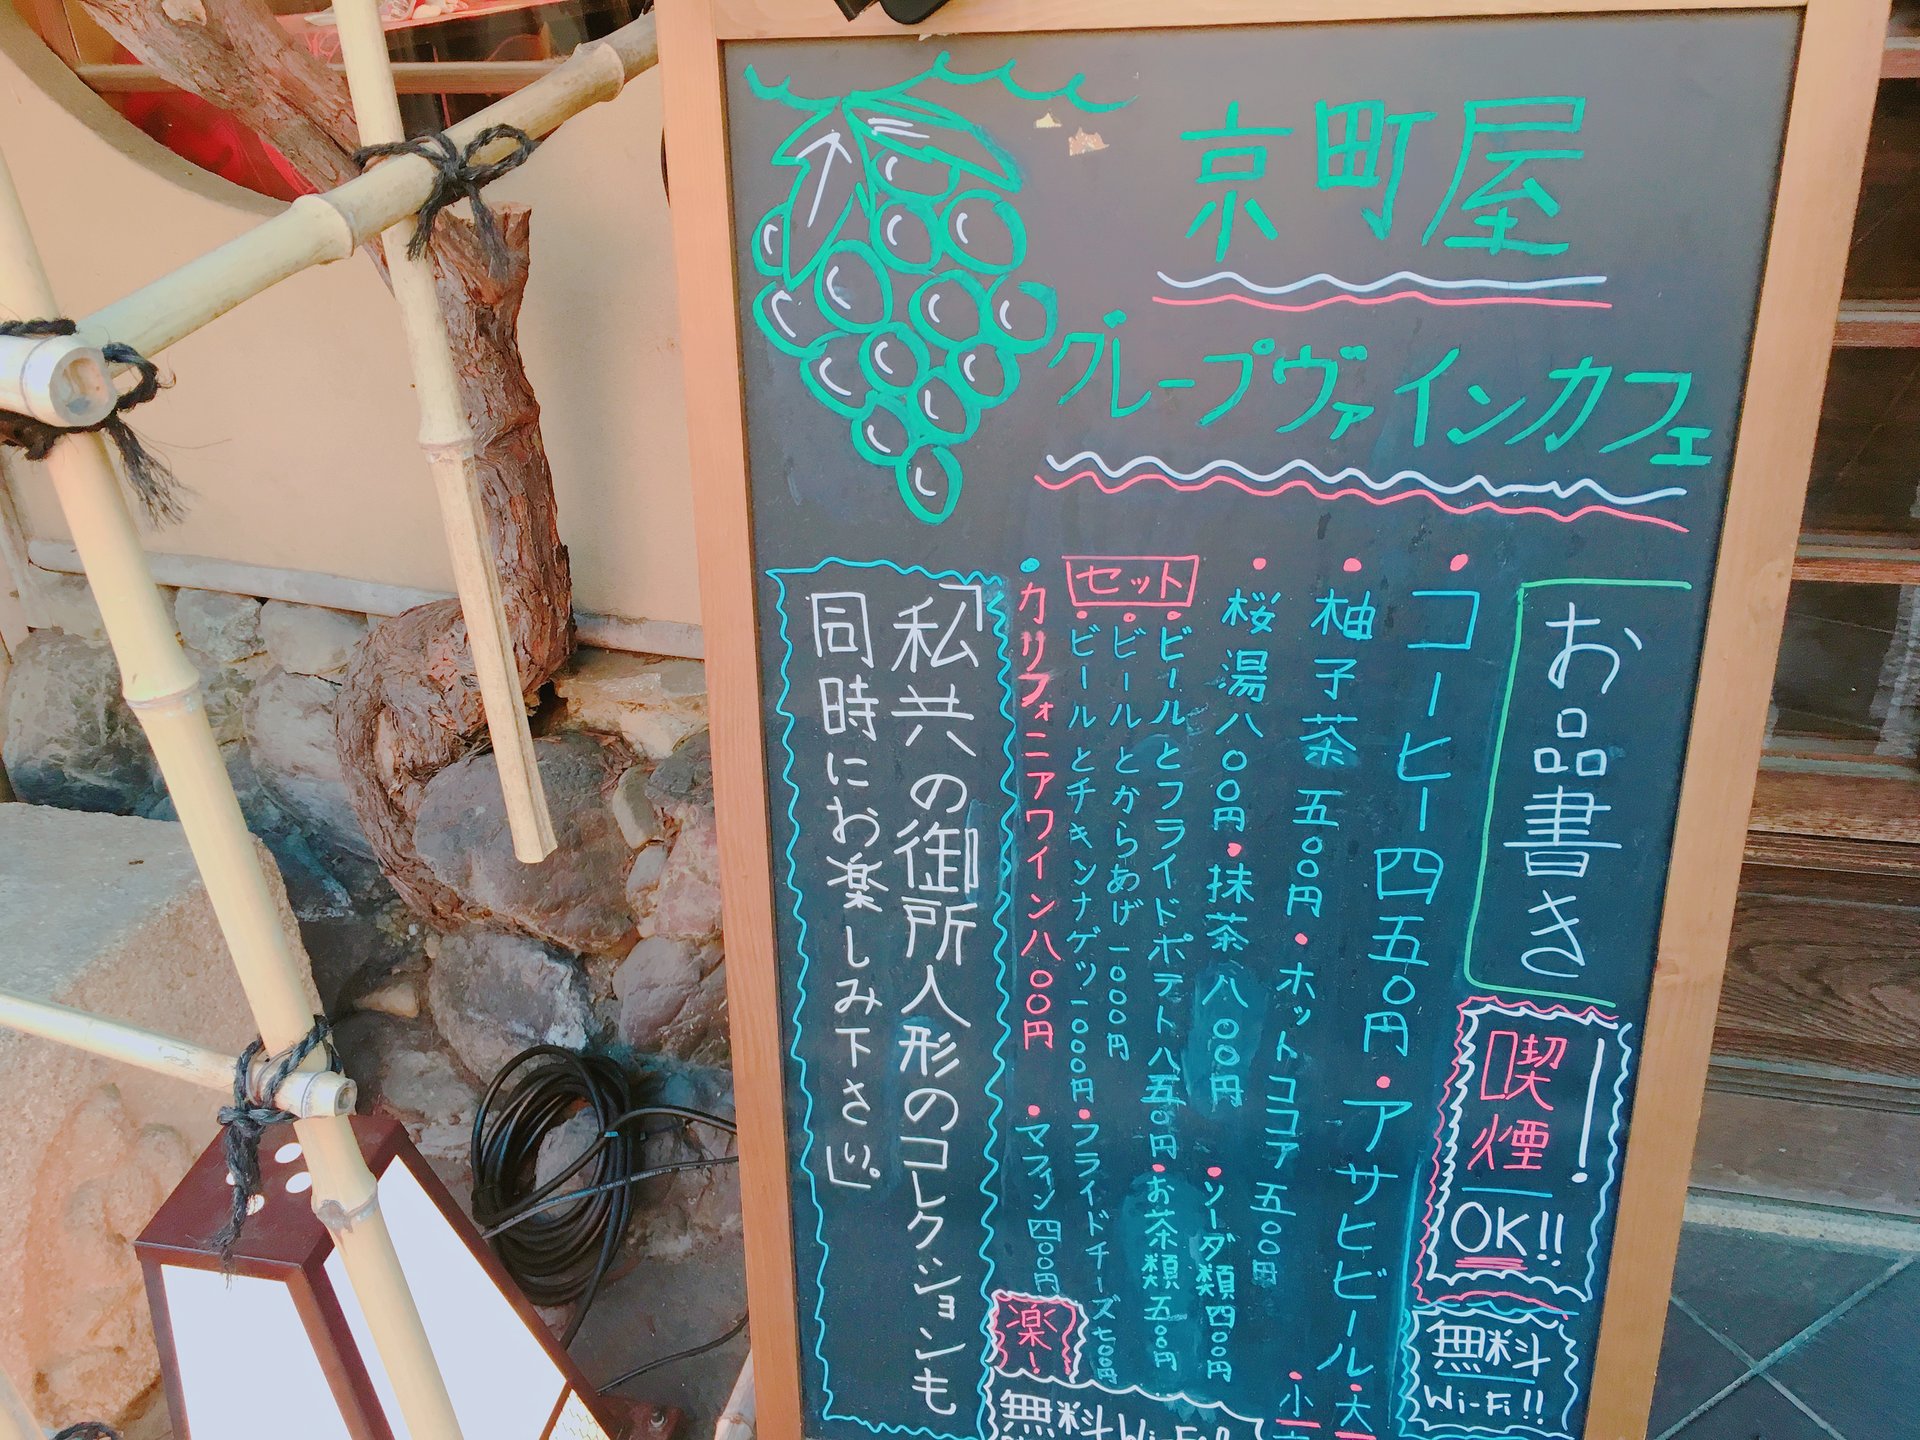 京町屋
グレープヴァインカフェ
お品書き
喫煙
OK!!
無料
Wi-Fi!!
・コーヒー四五〇円・アサヒビール
・大
・小
・柚子茶 五〇〇円・ホットココア 五〇〇円
・桜湯八〇〇円・抹茶 八〇〇円・ソーダ類四〇〇円
セット
・ビールとフライドポテト八五〇円・お茶類五〇〇円
・ビールとからあげ一〇〇〇円
・ビールとチキンナゲッ一〇〇〇円・フライドチーズ七〇〇円
・カリフォニアワイン八〇〇円・マフィン四〇〇円
楽!
無料Wi-Fi
「私共の御所人形のコレクションも
同時にお楽しみ下さい。」